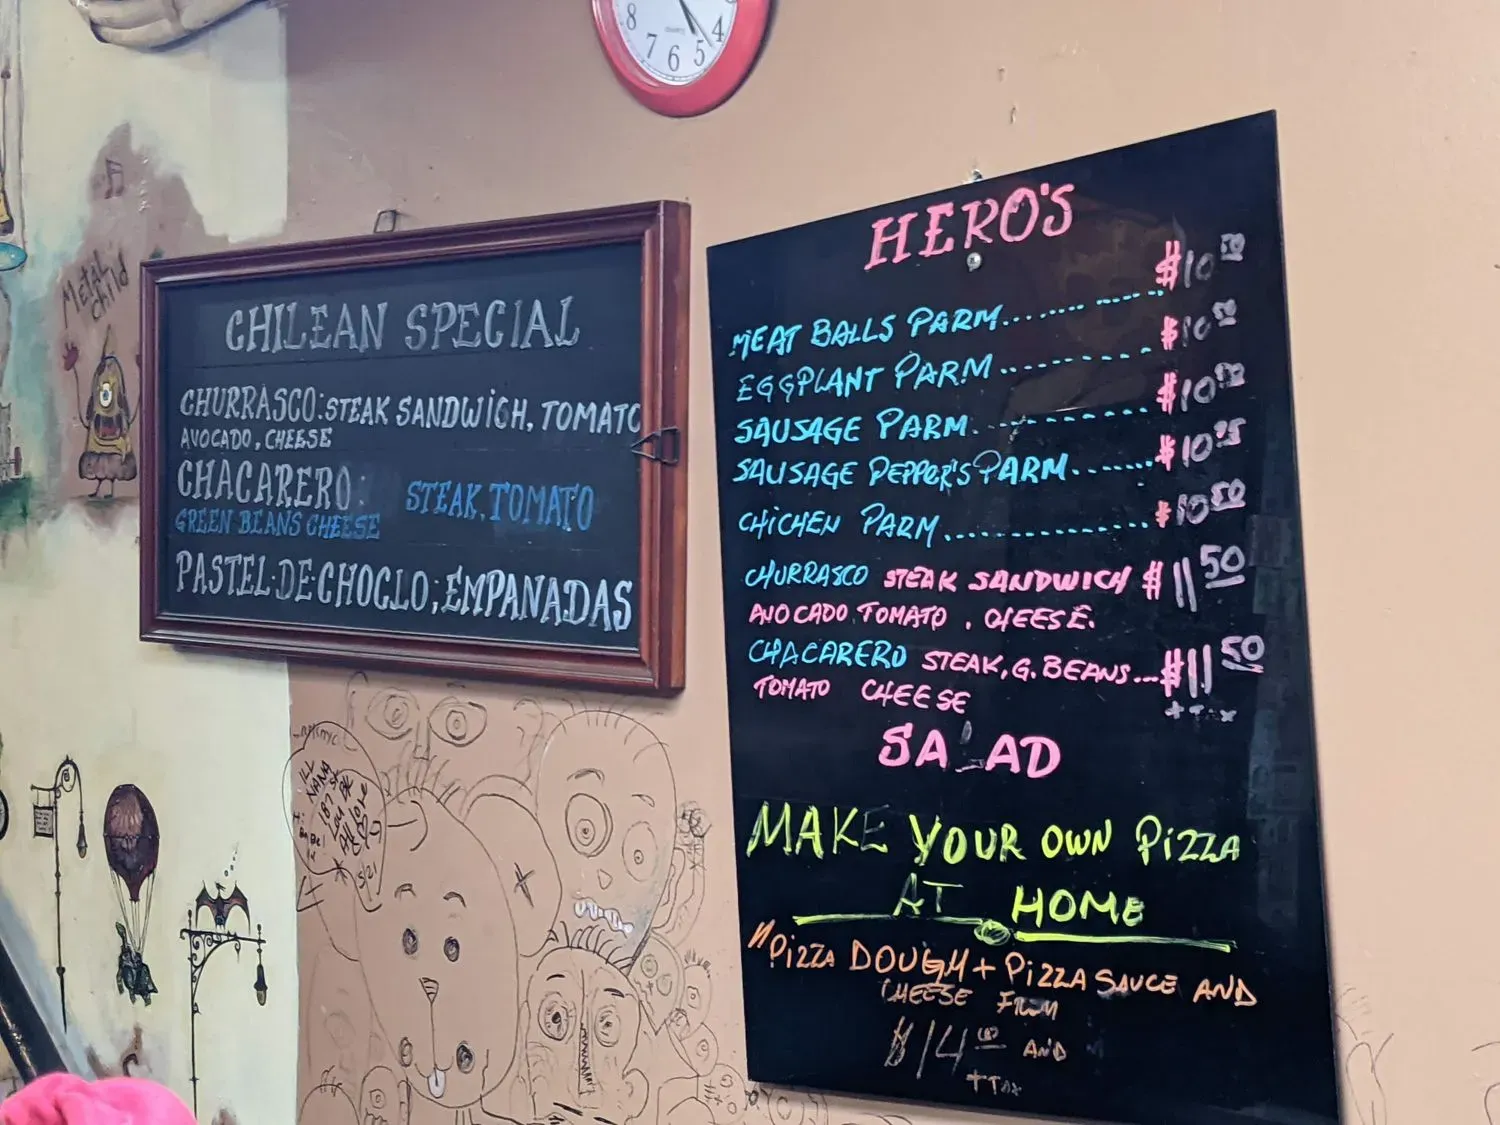 8 7 6 5 4
Metal
child
CHILEAN SPECIAL
CHURRASCO: STEAK SANDWICH, TOMATO
AVOCADO, CHEESE
CHACARERO: STEAK, TOMATO
GREEN BEANS CHEESE
PASTEL·DE·CHOCLO; EMPANADAS
ILL
NANA
187 St
HERO'S
MEAT BALLS PARM........ ...... $10 50
EGGPLANT PARM........... $10 50
SAUSAGE PARM............ $10 50
SAUSAGE PEPPER'S PARM....... $10
CHICHEN PARM................ $10 50
CHURRASCO STEAK SANDWICH $11 50
AVOCADO TOMATO , CHEESE.
CHACARERO STEAK, G. BEANS... $11 50
TOMATO CHEESE + TAX
SALAD
MAKE YOUR OWN PIZZA
AT HOME
"PIZZA DOUGH + PIZZA SAUCE AND
CHEESE FROM
$14 AND
+ TAX